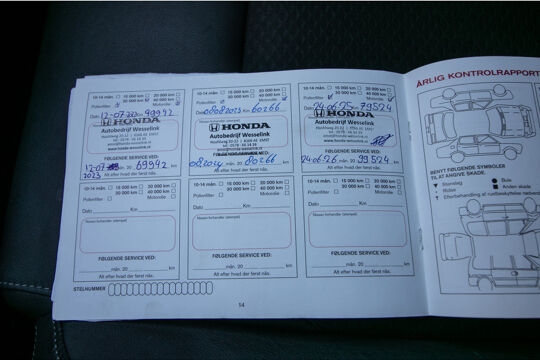 10-14 mån. 15 000 km 20 000 km
30 000 km 40 000 km
Pollenfilter Motorolie
Dato 12-07-2022 km 49942
HONDA
Autobedrijf Wesselink
www.honda-wesselink.nl
FØLGENDE SERVICE VED:
12-07 2023 69942
Alt efter hvad der først nås.
10-14 mån. 15 000 km 20 000 km
30 000 km 40 000 km
Pollenfilter Motorolie
Dato 08082023 km 60266
HONDA
Autobedrijf Wesselink
www.honda-wesselink.nl
FØLGENDE SERVICE VED:
082024 mån. 20 80266
Alt efter hvad der først nås.
10-14 mån. 15 000 km 20 000 km
30 000 km 40 000 km
Pollenfilter Motorolie
Dato 24-06-25 km 79524
HONDA
Autobedrijf Wesselink
www.honda-wesselink.nl
FØLGENDE SERVICE VED:
24-06-26 mån. 20 99524 km
Alt efter hvad der først nås.
10-14 mån. 15 000 km 20 000 km
30 000 km 40 000 km
Pollenfilter Motorolie
Dato km
FØLGENDE SERVICE VED:
mån. 20 km
Alt efter hvad der først nås.
10-14 mån. 15 000 km 20 000 km
30 000 km 40 000 km
Pollenfilter Motorolie
Dato km
FØLGENDE SERVICE VED:
mån. 20 km
Alt efter hvad der først nås.
10-14 mån. 15 000 km 20 000 km
30 000 km 40 000 km
Pollenfilter Motorolie
Dato km
FØLGENDE SERVICE VED:
mån. 20 km
Alt efter hvad der først nås.
STELNUMMER
14
ÅRLIG KONTROLRAPPORT
BENYT FØLGENDE SYMBOLER
TIL AT ANGIVE SKADE.
Stenslag
Bule
Ridse
Anden skade